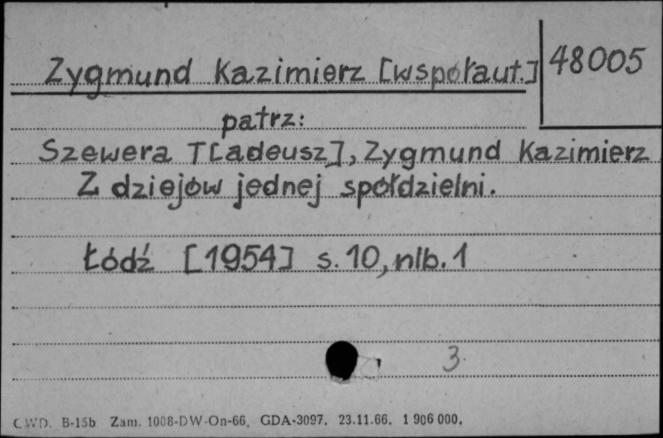 Zygmund Kazimierz [współaut.] 48005
patrz:
Szewera T[adeusz], Zygmund Kazimierz
Z dziejów jednej spółdzielni.
Łódź [1954] s. 10, nlb. 1
3.
CWD. B-15b Zam. 1008-DW-On-66, GDA-3097. 23.11.66. 1 906 000.